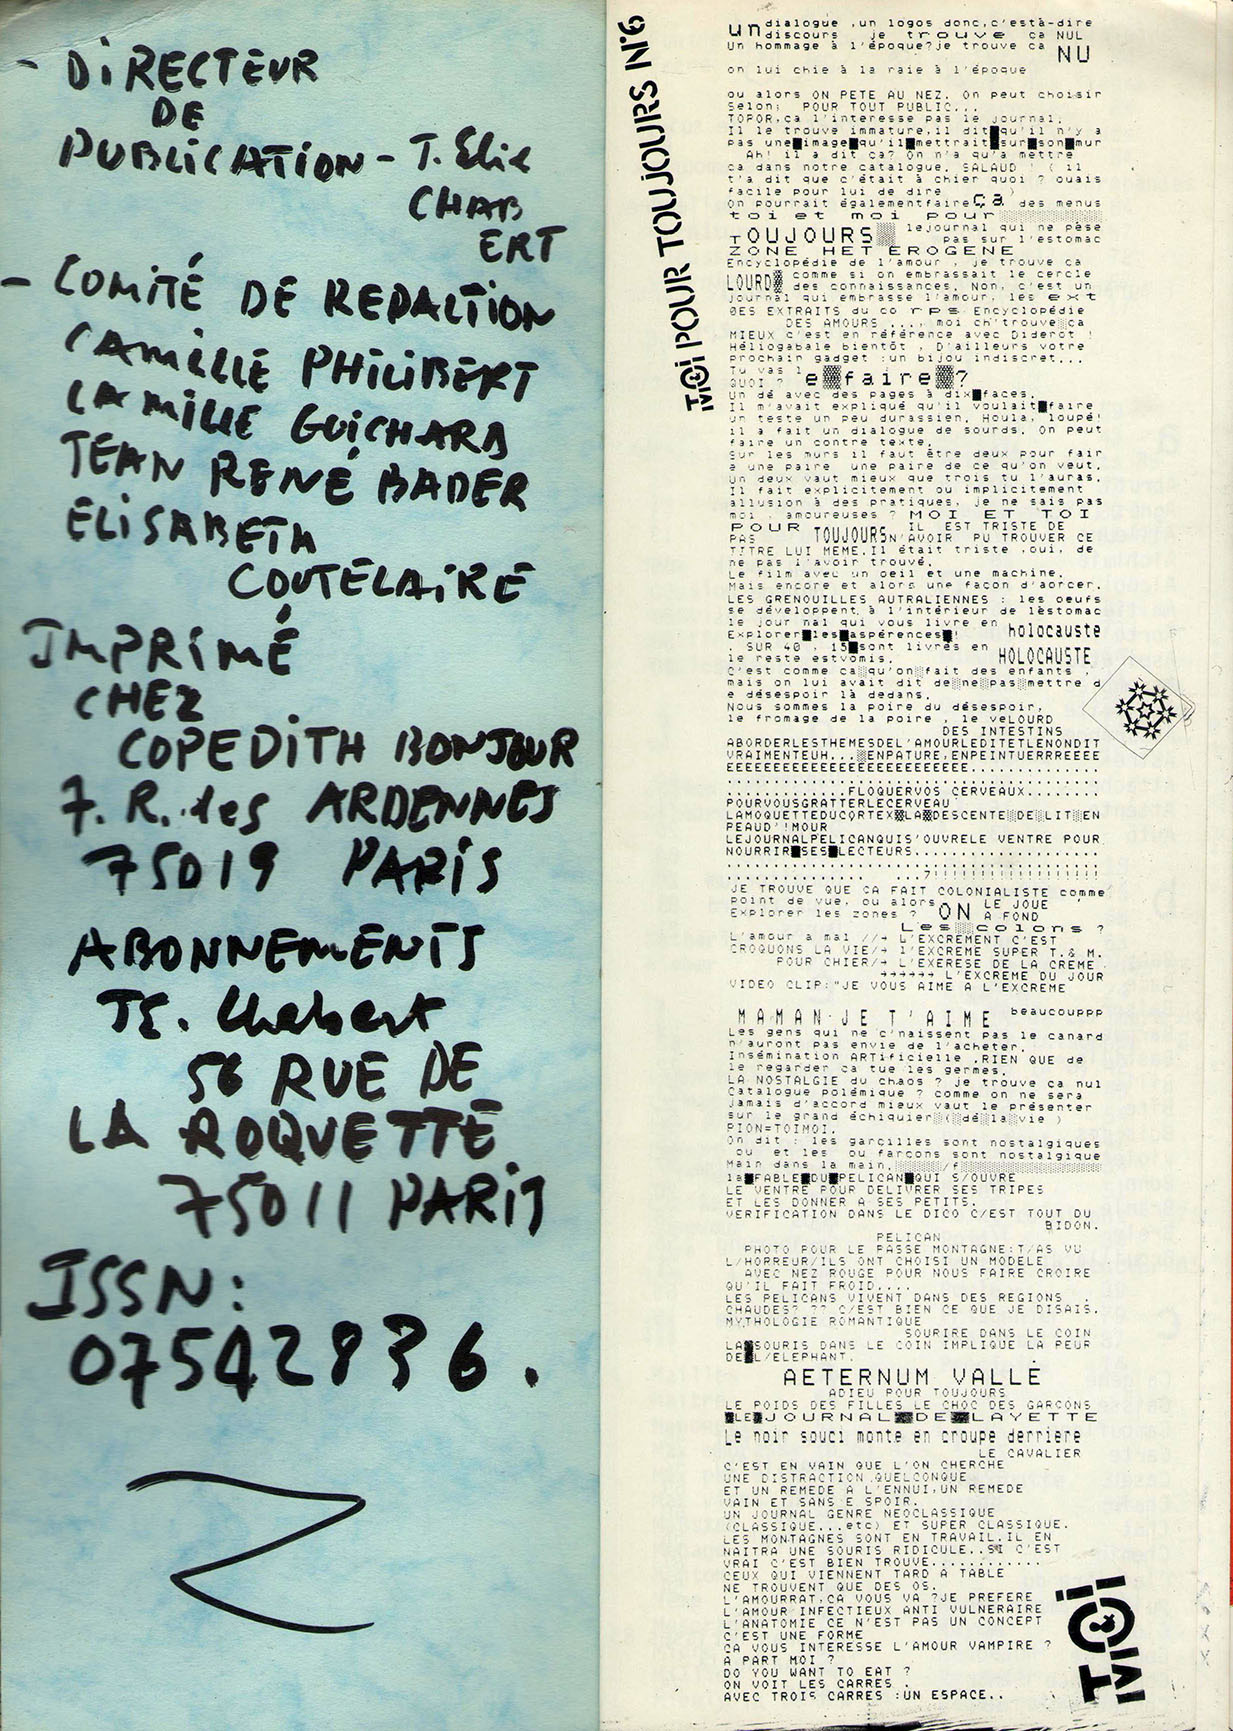 - DiRECTEUR
DE
PUBLICATION - T. Elie
CHAB
ERT
- COMiTÉ DE REDACTION
CAMILLE PHILIBERT
CAMILLE GUICHARD
JEAN RENÉ BADER
ELISABETH
COUTELAIRE
IMPRIMÉ
CHEZ
COPEDITH BONJOUR
7. R. des ARDENNES
75019 PARIS
ABONNEMENTS
TE. Chabert
56 RUE DE
LA ROQUETTE
75011 PARIS
ISSN:
07542836.
TOi & MOi POUR TOUJOURS N°6
un dialogue ,un logos donc,c'està-dire
discours je trouve ca NUL
Un hommage à l'époque?je trouve ca NU
on lui chie à la raie à l'époque
ou alors ON PETE AU NEZ. On peut choisir
Selon: POUR TOUT PUBLIC...
TOPOR,ca l'interesse pas le journal.
Il le trouve immature,il dit qu'il n'y a
pas une image qu'il mettrait sur son mur
Ah! il a dit ca? On n'a qu'a mettre
ca dans notre catalogue. SALAUD ! ( il
t'a dit que c'était à chier quoi ? ouais
facile pour lui de dire )
On pourrait égalementfaire ça des menus
toi et moi pour
TOUJOURS lejournal qui ne pèse
pas sur l'estomac
ZONE HETEROGENE
Encyclopédie de l'amour , je trouve ca
LOURD comme si on embrassait le cercle
des connaissances. Non, c'est un
journal qui embrasse l'amour, les ext
DES EXTRAITS du co rps Encyclopédie
DES AMOURS ..., moi ch'trouve ca
MIEUX c'est en référence avec Diderot !
Héliogabale bientôt . D'ailleurs votre
prochain gadget :un bijou indiscret...
Tu vas l
QUOI ? e faire ?
Un dé avec des pages à dix faces.
Il m'avait expliqué qu'il voulait faire
un texte un peu durassien. Houla, loupé!
il a fait un dialogue de sourds. On peut
faire un contre texte.
Sur les murs il faut être deux pour fair
e une paire une paire de ce qu'on veut.
Un deux vaut mieux que trois tu l'auras.
Il fait explicitement ou implicitement
allusion à des pratiques, je ne sais pas
moi , amoureuses ? MOI ET TOI
POUR TOUJOURS IL EST TRISTE DE
PAS N'AVOIR PU TROUVER CE
TITRE LUI MEME.Il était triste ,oui, de
ne pas l'avoir trouvé.
Le film avec un oeil et une machine.
Mais encore et alors une façon d'aorcer.
LES GRENOUILLES AUTRALIENNES : les oeufs
se développent à l'intérieur de lèstomac
le jour nal qui vous livre en holocauste
Explorer les aspérences !
. SUR 40 , 15 sont livrés en HOLOCAUSTE
le reste estvomis.
C'est comme ca qu'on fait des enfants ,
mais on lui avait dit de ne pas mettre d
e désespoir là dedans.
Nous sommes la poire du désespoir,
le fromage de la poire , le veLOURD
DES INTESTINS
ABORDERLESTHEMESDEL'AMOURLEDITETLENONDIT
VRAIMENTEUH... ENPATURE,ENPEINTUERRREEEE
EEEEEEEEEEEEEEEEEEEEEEEEEE..............
..............FLOQUERVOS CERVEAUX........
POURVOUSGRATTERLECERVEAU
LAMOQUETTEDUCORTEX LA DESCENTE DE LIT EN
PEAUD'!MOUR
LEJOURNALPELICANQUIS'OUVRELE VENTRE POUR
NOURRIR SES LECTEURS....................
JE TROUVE QUE CA FAIT COLONIALISTE comme
point de vue, ou alors ON LE JOUE
Explorer les zones ? A FOND
Les colons ?
L'amour a mal //→ L'EXCREMENT C'EST
CROQUONS LA VIE/→ L'EXCREME SUPER T.& M.
POUR CHIER/→ L'EXERESE DE LA CREME
→→→→→→ L'EXCREME DU JOUR
VIDEO CLIP:"JE VOUS AIME A L'EXCREME
MAMAN JE T'AIME beaucouppp
Les gens qui ne c'naissent pas le canard
n'auront pas envie de l'acheter.
Insémination ARTificielle .RIEN QUE de
le regarder ca tue les germes.
LA NOSTALGIE du chaos ? je trouve ca nul
Catalogue polémique ? comme on ne sera
jamais d'accord mieux vaut le présenter
sur le grand échiquier ( de la vie )
PION=TOIMOI.
On dit : les garcilles sont nostalgiques
ou et les ou farcons sont nostalgique
Main dans la main. /f
la FABLE DU PELICAN QUI S/OUVRE
LE VENTRE POUR DELIVRER SES TRIPES
ET LES DONNER A SES PETITS.
VERIFICATION DANS LE DICO C/EST TOUT DU
BIDON.
PELICAN
PHOTO POUR LE PASSE MONTAGNE:T/AS VU
L/HORREUR/ILS ONT CHOISI UN MODELE
AVEC NEZ ROUGE POUR NOUS FAIRE CROIRE
QU'IL FAIT FROID....
LES PELICANS VIVENT DANS DES REGIONS
CHAUDES? ?? C/EST BIEN CE QUE JE DISAIS.
MYTHOLOGIE ROMANTIQUE
SOURIRE DANS LE COIN
LA SOURIS DANS LE COIN IMPLIQUE LA PEUR
DE L/ELEPHANT.
AETERNUM VALLE
ADIEU POUR TOUJOURS
LE POIDS DES FILLES LE CHOC DES GARCONS
LE JOURNAL DE LAYETTE
Le noir souci monte en croupe derriere
LE CAVALIER
C'EST EN VAIN QUE L'ON CHERCHE
UNE DISTRACTION QUELCONQUE
ET UN REMEDE A L'ENNUI,UN REMEDE
VAIN ET SANS E SPOIR.
UN JOURNAL GENRE NEOCLASSIQUE
(CLASSIQUE...etc) ET SUPER CLASSIQUE.
LES MONTAGNES SONT EN TRAVAIL,IL EN
NAITRA UNE SOURIS RIDICULE..SI C'EST
VRAI C'EST BIEN TROUVE............
CEUX QUI VIENNENT TARD A TABLE
NE TROUVENT QUE DES OS.
L'AMOURRAT,CA VOUS VA ?JE PREFERE
L'AMOUR INFECTIEUX ANTI VULNERAIRE
L'ANATOMIE CE N'EST PAS UN CONCEPT
C'EST UNE FORME
CA VOUS INTERESSE L'AMOUR VAMPIRE ?
A PART MOI ?
DO YOU WANT TO EAT ?
ON VOIT LES CARRES .
AVEC TROIS CARRES :UN ESPACE..
TOi & MOi